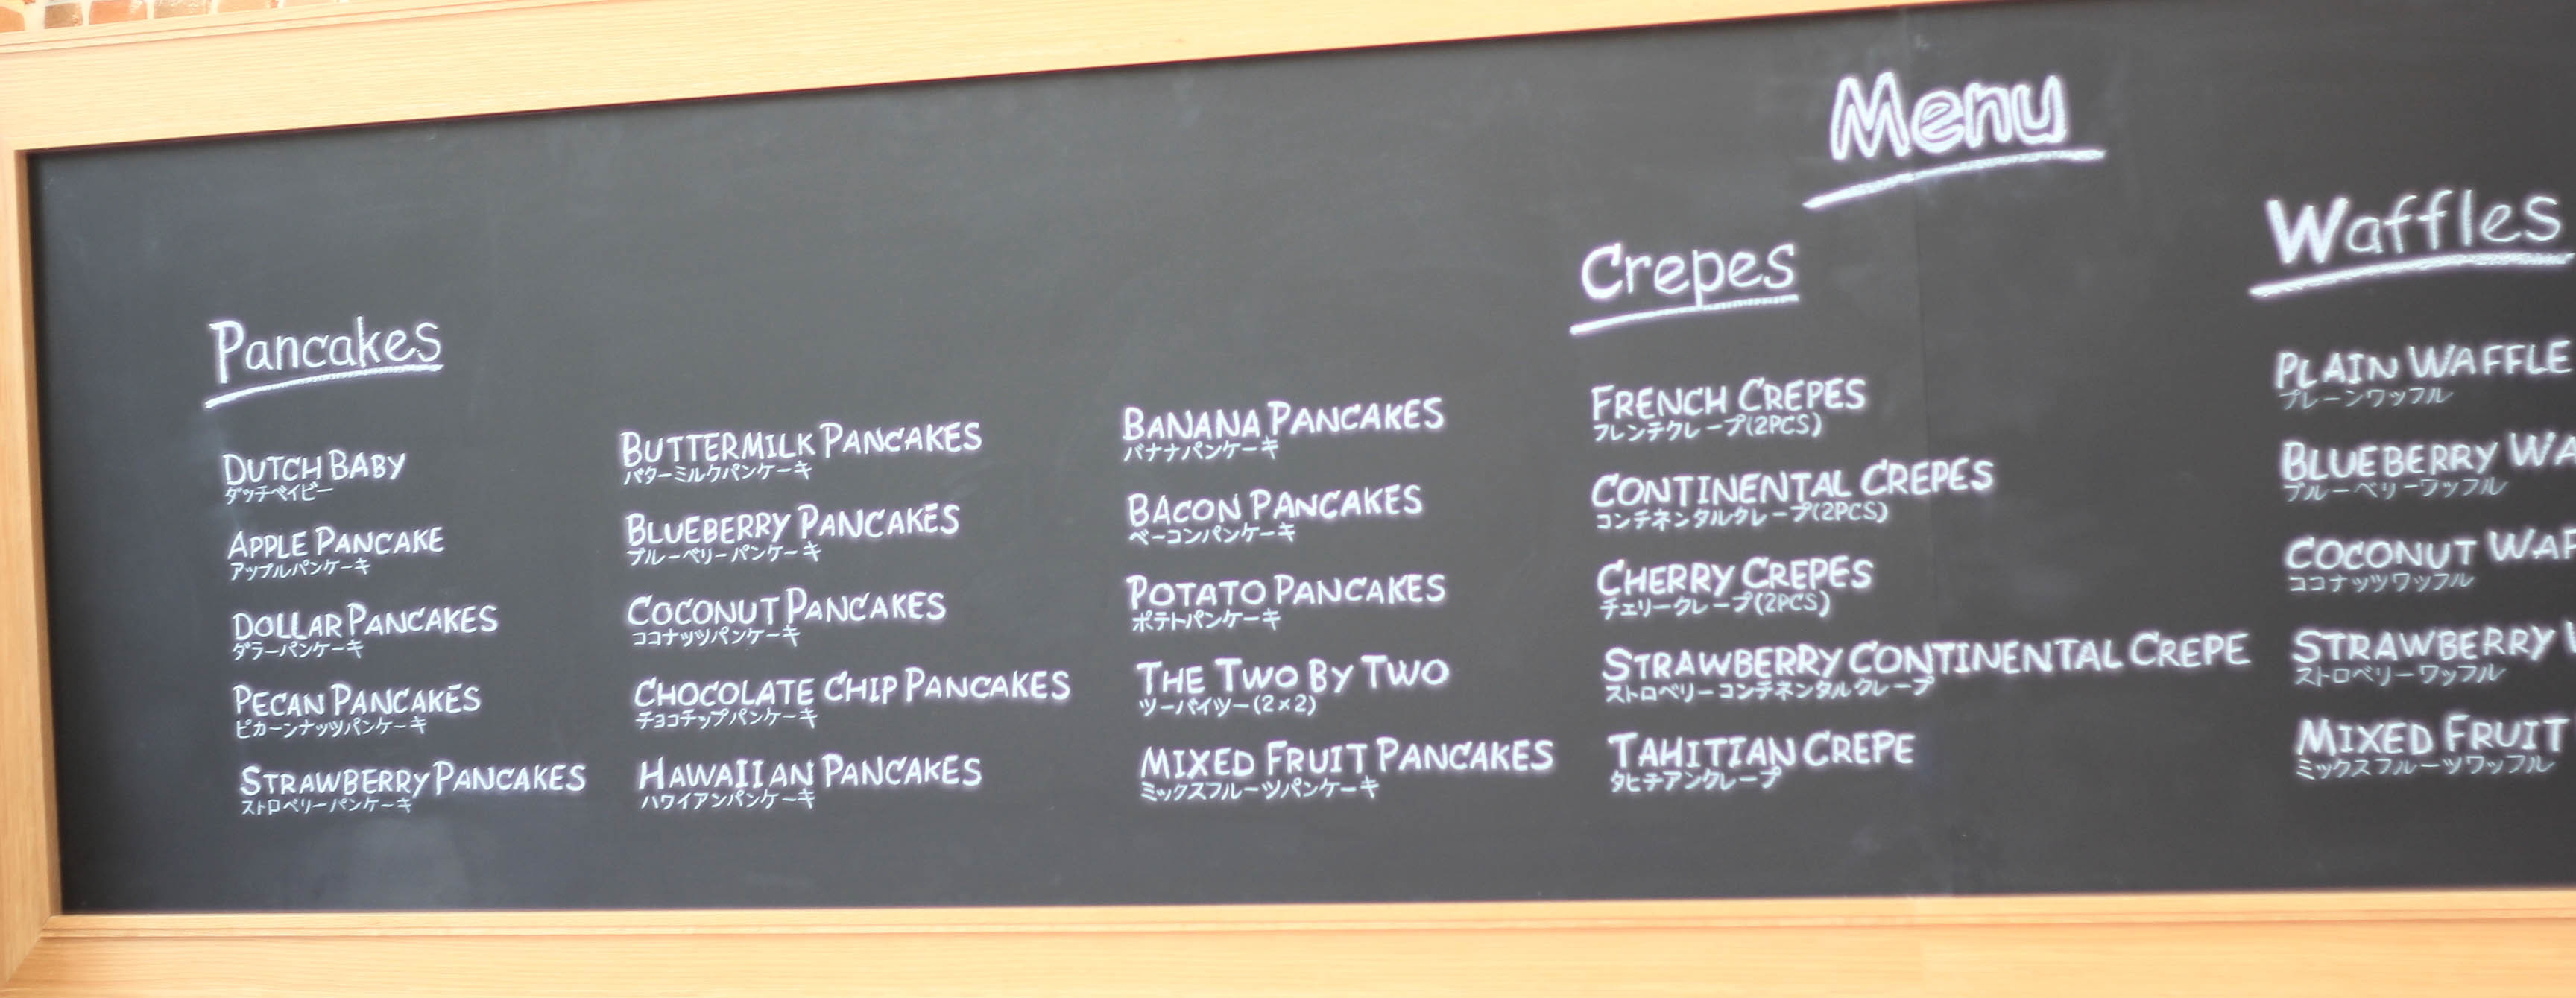 Menu
Pancakes
DUTCH BABY
ダッチベイビー
APPLE PANCAKE
アップルパンケーキ
DOLLAR PANCAKES
ダラーパンケーキ
PECAN PANCAKES
ピカーンナッツパンケーキ
STRAWBERRY PANCAKES
ストロベリーパンケーキ
BUTTERMILK PANCAKES
バターミルクパンケーキ
BLUEBERRY PANCAKES
ブルーベリーパンケーキ
COCONUT PANCAKES
ココナッツパンケーキ
CHOCOLATE CHIP PANCAKES
チョコチップパンケーキ
HAWAIIAN PANCAKES
ハワイアンパンケーキ
BANANA PANCAKES
バナナパンケーキ
BACON PANCAKES
ベーコンパンケーキ
POTATO PANCAKES
ポテトパンケーキ
THE TWO BY TWO
ツーバイツー(2×2)
MIXED FRUIT PANCAKES
ミックスフルーツパンケーキ
Crepes
FRENCH CREPES
フレンチクレープ(2PCS)
CONTINENTAL CREPES
コンチネンタルクレープ(2PCS)
CHERRY CREPES
チェリークレープ(2PCS)
STRAWBERRY CONTINENTAL CREPE
ストロベリーコンチネンタルクレープ
TAHITIAN CREPE
タヒチアンクレープ
Waffles
PLAIN WAFFLE
プレーンワッフル
BLUEBERRY WA
ブルーベリーワッフル
COCONUT WAF
ココナッツワッフル
STRAWBERRY
ストロベリーワッフル
MIXED FRUIT
ミックスフルーツワッフル